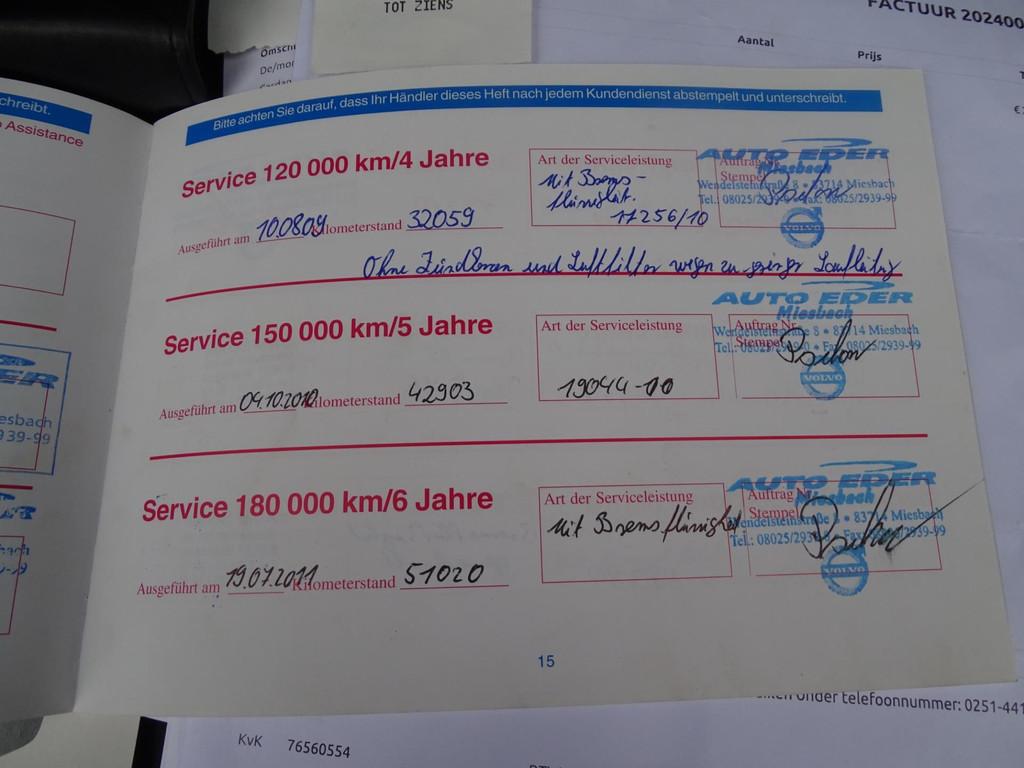 TOT ZIENS
FACTUUR 202400
Omschr
Aantal
Prijs
De/mon
chreibt.
Assistance
Bitte achten Sie darauf, dass Ihr Händler dieses Heft nach jedem Kundendienst abstempelt und unterschreibt.
Service 120 000 km/4 Jahre
Art der Serviceleistung
Mit Brems-
flüssigkeit.
17256/10
Auftrag Nr.
Stempel
AUTO EDER
Miesbach
Wendelsteinstraße 8 • 83714 Miesbach
Tel.: 08025/2939-0 • Fax: 08025/2939-99
VOLVO
Ausgeführt am 10.08.09 Kilometerstand 32059
Ohne Zündkerzen und Luftfilter wegen zu geringer Laufleistung
Service 150 000 km/5 Jahre
Art der Serviceleistung
19044-00
Auftrag Nr.
Stempel
AUTO EDER
Miesbach
Wendelsteinstraße 8 • 83714 Miesbach
Tel.: 08025/2939-0 • Fax: 08025/2939-99
VOLVO
Ausgeführt am 04.10.2010 Kilometerstand 42903
Service 180 000 km/6 Jahre
Art der Serviceleistung
Mit Bremsflüssigkeit
Auftrag Nr.
Stempel
AUTO EDER
Miesbach
Wendelsteinstraße 8 • 83714 Miesbach
Tel.: 08025/2939-0 • Fax: 08025/2939-99
VOLVO
Ausgeführt am 19.07.2011 Kilometerstand 51020
15
esbach
939-99
onder telefoonnummer: 0251-441
KvK 76560554